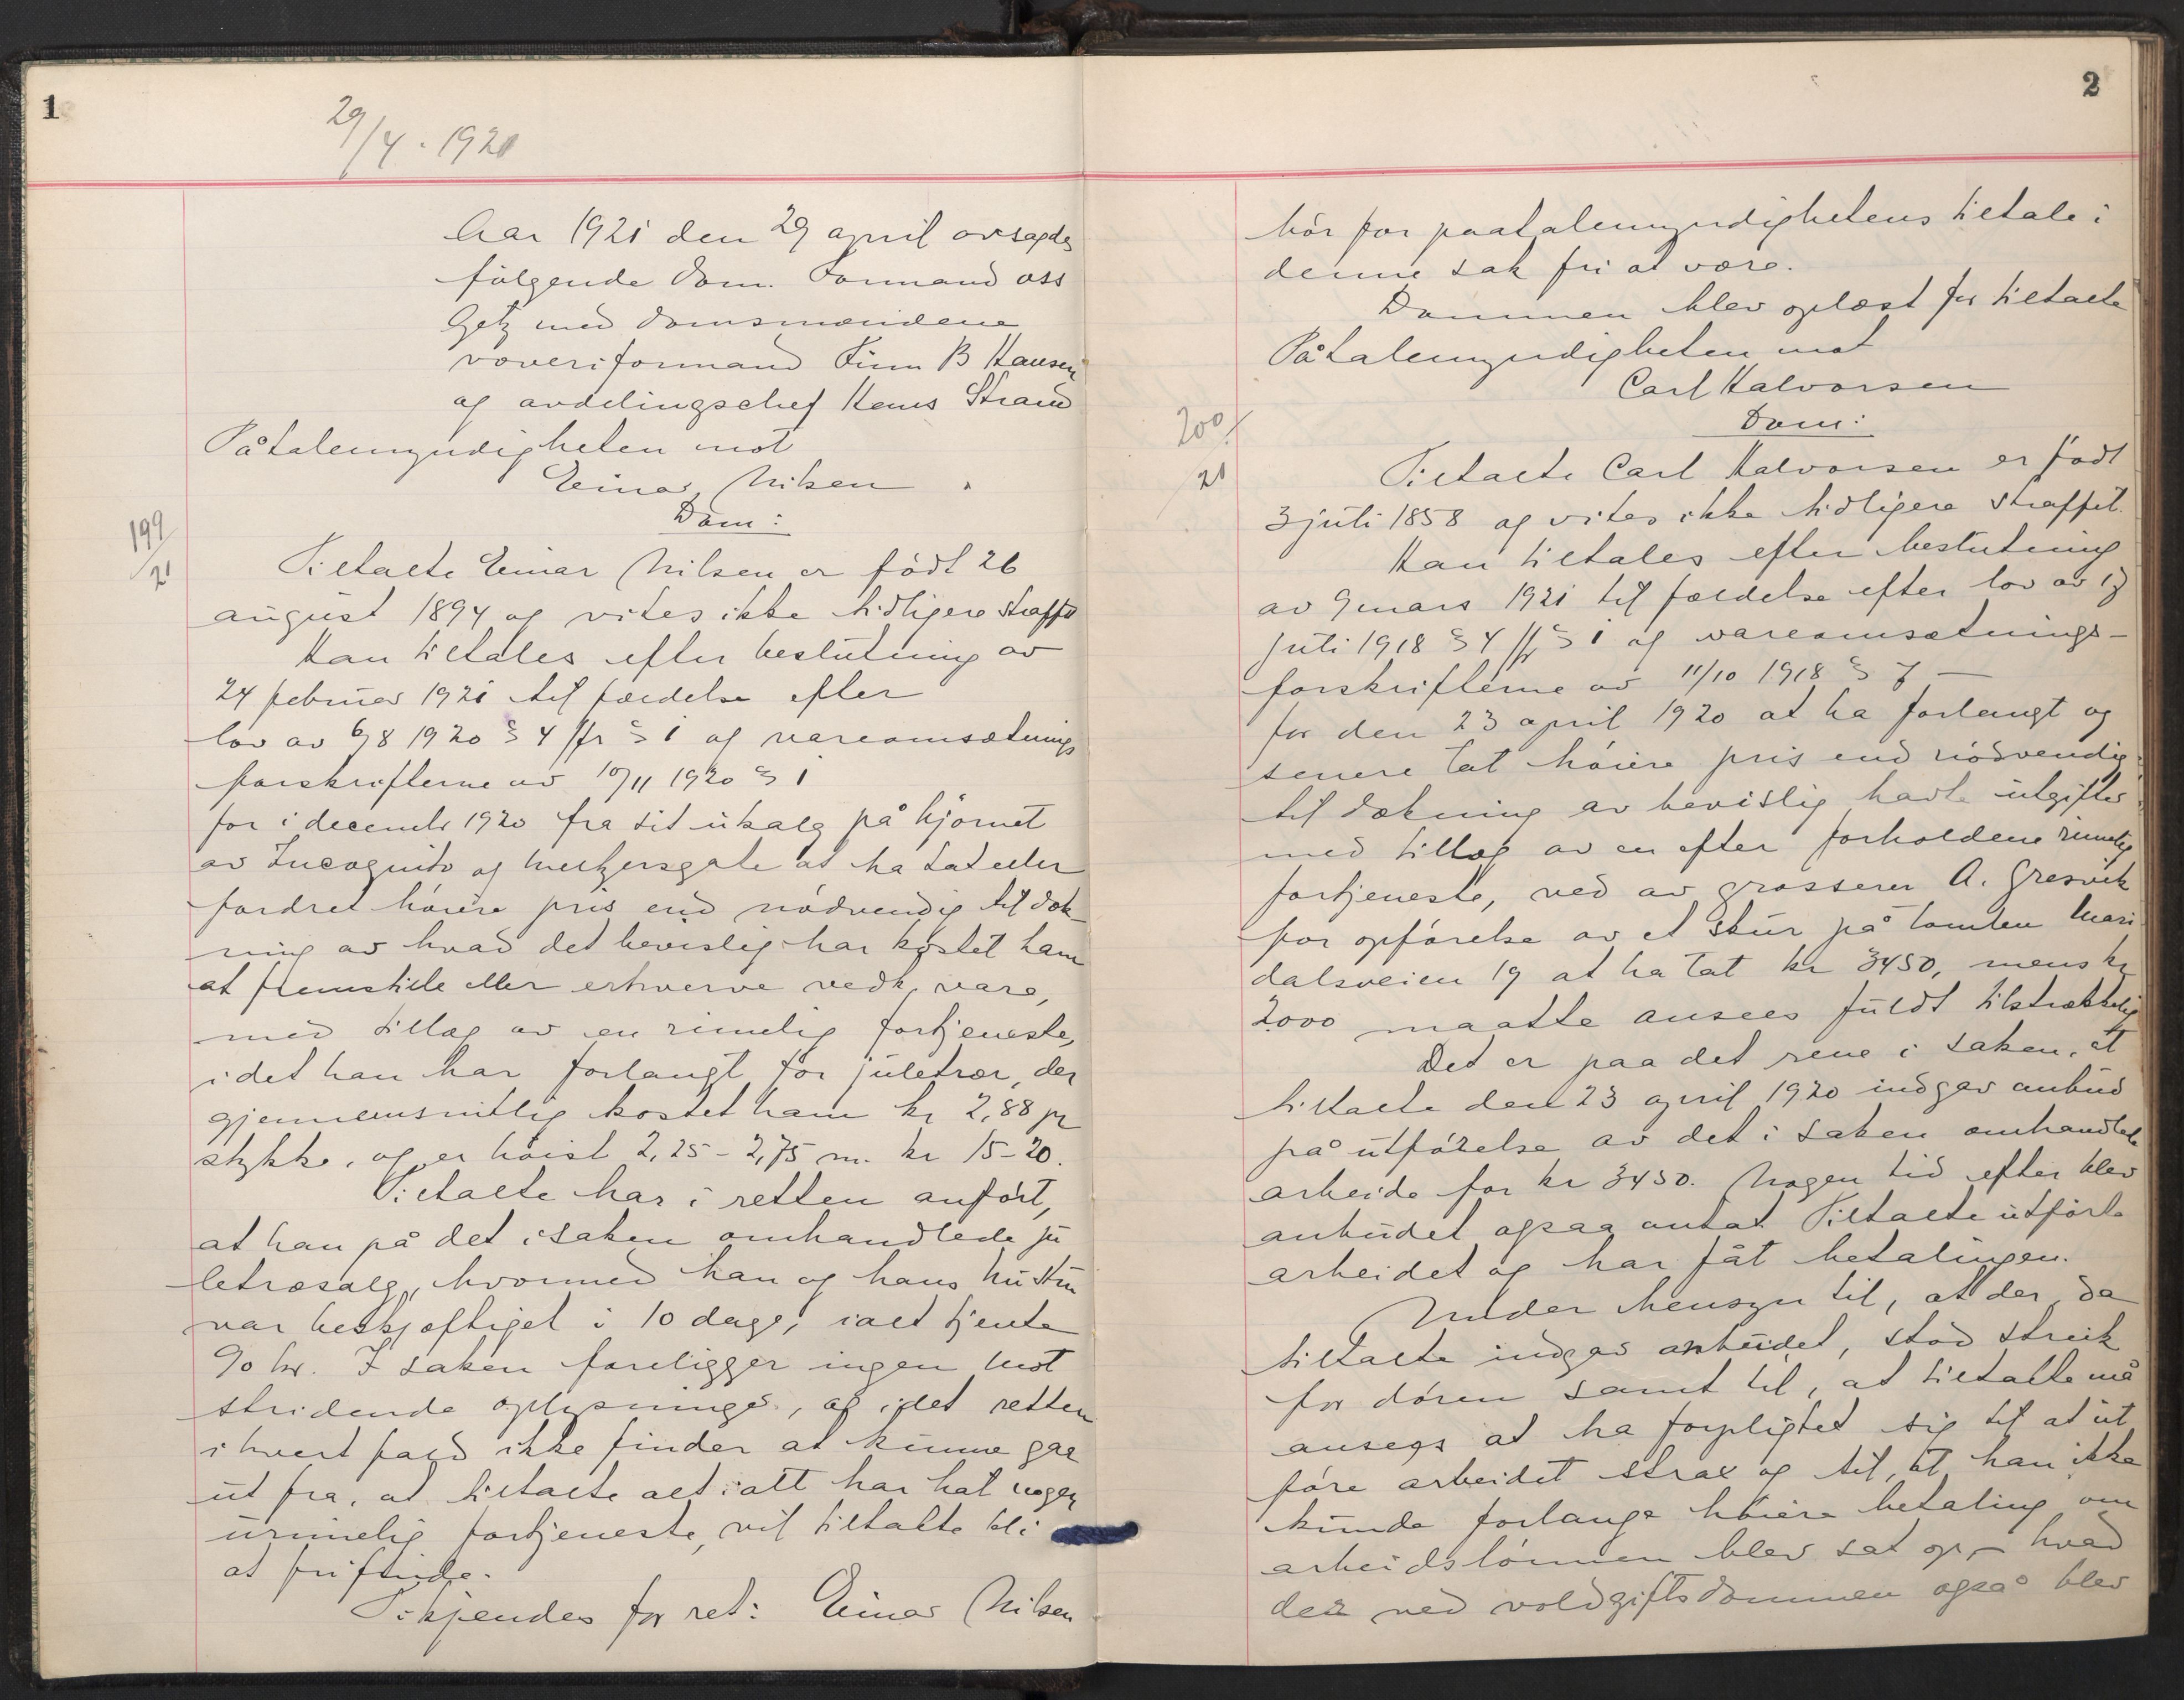 1
29/4 - 1921
Aar 1921 den 29 april avsagdes
følgende dom. Formand ass
Getz med domsmændene
væveriformand Finn B Hansen
og avdelingschef Hans Strand
Påtalemyndigheten mot
Einar Nilsen
Dom:
199/21
Tiltalte Einar Nilsen er født 26
august 1894 og vites ikke tidligere straffet
Han tiltales efter beslutning av
24 februar 1921 til fældelse efter
lov av 6/8 1920 § 4 jfr § 1 og vareomsætnings
forskrifterne av 10/11 1920 § 1
for i decembr 1920 fra sit utsalg på hjørnet
av Incognito og Meltzersgate at ha tat eller
fordret høiere pris end nødvendig til dæk
ning av hvad det bevislig har kostet ham
at fremstille eller erhverve vedk. vare,
med tillæg av en rimelig fortjeneste,
idet han har forlangt for juletrær, der
gjennemsnitlig kostet ham kr 2,88 pr
stykke, og er høist 2,25 - 2,75 m. kr 15-20.
Tiltalte har i retten anført,
at han på det i saken omhandlede ju
letræsalg, hvormed han og hans hustru
var beskjæftiget i 10 dage, ialt tjente
90 kr. I saken foreligger ingen mot
stridende oplysninger, og idet retten
i hvert fald ikke finder at kunne gaa
ut fra, at tiltalte alt i alt har hat nogen
urimelig fortjeneste, vil tiltalte bli
at frifinde.
Ti kjendes for ret: Einar Nilsen
2
bør for paatalemyndighetens tiltale i
denne sak fri at være.
Dommen blev oplæst for tiltalte
Påtalemyndigheten mot
Carl Halvorsen
Dom:
200/21
Tiltalte Carl Halvorsen er født
3 juli 1858 og vites ikke tidligere straffet.
Han tiltales efter beslutning
av 9 mars 1921 til fældelse efter lov av 17
juli 1918 § 4 jfr § 1 og vareomsætnings-
forskrifterne av 11/10 1918 § 7 —
for den 23 april 1920 at ha forlangt og
senere tat høiere pris end nødvendig
til dækning av bevislig havte utgifter
med tillæg av en efter forholdene rimelig
fortjeneste, ved av grosserer A. Gresvik
for opførelse av et skur på tomten Mari
dalsveien 19 at ha tat kr 3450, mens kr
2000 maatte ansees fuldt tilstrækkelig
Det er paa det rene i saken, at
tiltalte den 23 april 1920 indgav anbud
på utførelse av det i saken omhandlede
arbeide for kr 3450. Nogen tid efter blev
anbudet ogsaa antat. Tiltalte utførte
arbeidet og har fåt betalingen.
Under hensyn til, at der, da
tiltalte indgav anbudet, stod streik
for døren samt til, at tiltalte må
ansees at ha forpligtet sig til at ut
føre arbeidet strax og til, at han ikke
kunde forlange høiere betaling om
arbeidslønnen blev sat op, - hvad
der ved voldgiftsdommen også blev